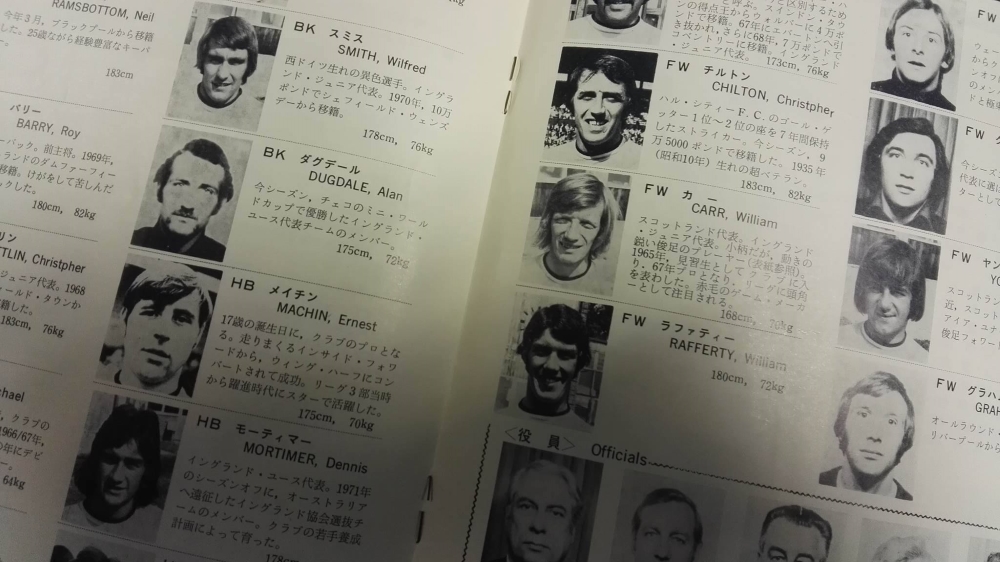 RAMSBOTTOM, Neil
今年3月，ブラックプールから移籍
した。25歳ながら経験豊富なキーパ
183cm
バリー
BARRY, Roy
ーバック。前主将。1969年，
ランドのダムファーフィー
移籍。けがをして苦しんだ
ックした。
180cm, 82kg
リン
TTLIN, Christpher
ジュニア代表。1968
ィールド・タウンか
移籍した。
183cm, 76kg
chael
クラブの
1966/67年，
の年にデビ
64kg
BK スミス
SMITH, Wilfred
西ドイツ生れの異色選手。イングラ
ンド・ジュニア代表。1970年，10万
ポンドでシェフィールド・ウェンズ
デーから移籍。
178cm, 76kg
BK ダグデール
DUGDALE, Alan
今シーズン，チェコのミニ・ワール
ドカップで優勝したイングランド・
ユース代表チームのメンバー。
175cm, 72kg
HB メイチン
MACHIN, Ernest
17歳の誕生日に，クラブのプロとな
る。走りまくるインサイド・フォワ
ードから，ウィング・ハーフにコン
バートされて成功。リーグ3部当時
から躍進時代にスターで活躍した。
175cm, 70kg
HB モーティマー
MORTIMER, Dennis
イングランド・ユース代表。1971年
のシーズンオフに，オーストラリア
へ遠征したイングランド協会選抜チ
ームのメンバー。クラブの若手養成
計画によって育った。
178cm
と区別するため
呼ぶ。スインドン・タウ
ンの得点王からウォルバートに4万ポ
ンドで移籍。67年にエバートンへ引
き抜かれ，さらに68年，7万ポンドで
コベントリーに移籍。イングランド
・ジュニア代表。 173cm, 76kg
FW チルトン
CHILTON, Christpher
ハル・シティーF.C.のゴール・ゲ
ッター1位～2位の座を7年間保持
したストライカー。今シーズン，9
万5000ポンドで移籍した。1935年
（昭和10年）生れの超ベテラン。
183cm, 82kg
FW カー
CARR, William
スコットランド代表。イングランド
・ジュニア代表。小柄だが，動きの
鋭い俊足のプレーヤー（表紙参照）。
1965年，見習生としてクラブに入
り，67年プロとなり，リーグに頭角
を表わした。赤毛のゲーム・メーカ
ーとして注目される。
168cm, 70kg
FW ラファティー
RAFFERTY, William
180cm, 72kg
〈役員〉 Officials
FW
ウェー
からク
のメン
ドと極
FW
今シーズ
代表に選
ターとし
FW ヤン
YO
スコット
近，スコット
アイア・ユナ
俊足フォワー
FW グラハ
GRAH
オールラウンド・
リバープールから